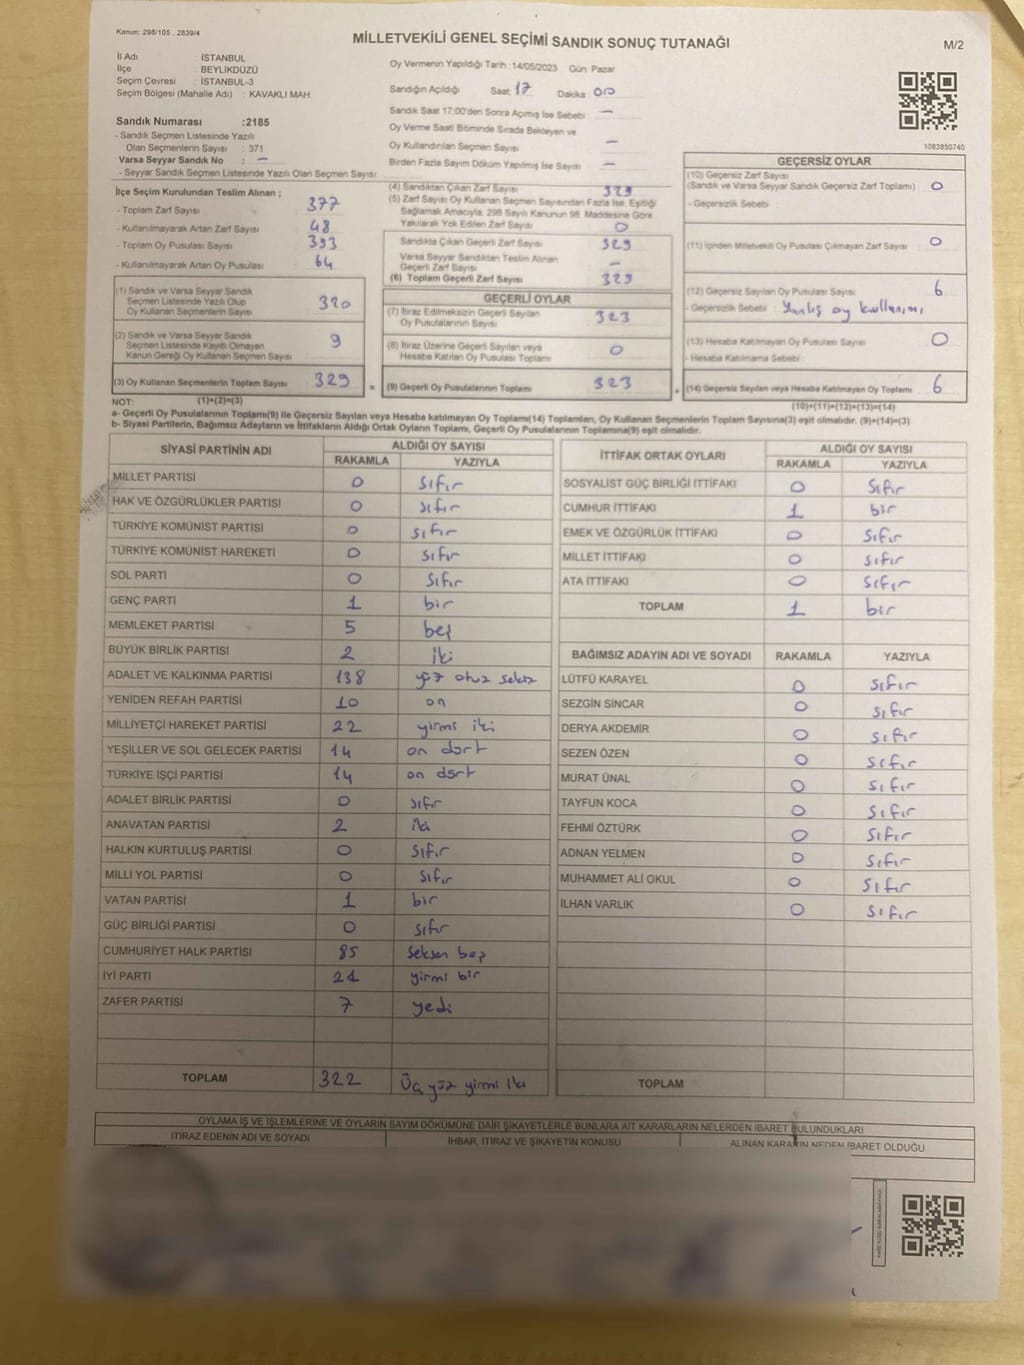 Kanun: 298/105 , 2839/4
MİLLETVEKİLİ GENEL SEÇİMİ SANDIK SONUÇ TUTANAĞI
M/2
İl Adı : İSTANBUL
İlçe : BEYLİKDÜZÜ
Seçim Çevresi : İSTANBUL-3
Seçim Bölgesi (Mahalle Adı) : KAVAKLI MAH.
Sandık Numarası :2185
- Sandık Seçmen Listesinde Yazılı
Olan Seçmenlerin Sayısı : 371
Varsa Seyyar Sandık No : –
- Seyyar Sandık Seçmen Listesinde Yazılı Olan Seçmen Sayısı :
Oy Vermenin Yapıldığı Tarih :14/05/2023 Gün: Pazar
Sandığın Açıldığı Saat 17 Dakika 00
Sandık Saat 17:00'den Sonra Açımış İse Sebebi : –
Oy Verme Saati Bitiminde Sırada Bekleyen ve
Oy Kullandırılan Seçmen Sayısı –
Birden Fazla Sayım Döküm Yapılmış İse Sayısı –
1083850740
İlçe Seçim Kurulundan Teslim Alınan ;
- Toplam Zarf Sayısı 377
- Kullanılmayarak Artan Zarf Sayısı : 48
- Toplam Oy Pusulası Sayısı : 393
- Kullanılmayarak Artan Oy Pusulası : 64
(1) Sandık ve Varsa Seyyar Sandık
Seçmen Listesinde Yazılı Olup
Oy Kullanan Seçmenlerin Sayısı 320
(2) Sandık ve Varsa Seyyar Sandık
Seçmen Listesinde Kayıtlı Olmayan
Kanun Gereği Oy Kullanan Seçmen Sayısı 9
(3) Oy Kullanan Seçmenlerin Toplam Sayısı 329 =
(4) Sandıktan Çıkan Zarf Sayısı 329
(5) Zarf Sayısı Oy Kullanan Seçmen Sayısından Fazla İse, Eşitliği
Sağlamak Amacıyla, 298 Sayılı Kanunun 98. Maddesine Göre
Yakılarak Yok Edilen Zarf Sayısı 0
Sandıkta Çıkan Geçerli Zarf Sayısı 329
Varsa Seyyar Sandıktan Teslim Alınan
Geçerli Zarf Sayısı –
(6) Toplam Geçerli Zarf Sayısı 329
GEÇERLİ OYLAR
(7) İtiraz Edilmeksizin Geçerli Sayılan
Oy Pusulalarının Sayısı 323
(8) İtiraz Üzerine Geçerli Sayılan veya
Hesaba Katılan Oy Pusulası Toplamı 0
(9) Geçerli Oy Pusulalarının Toplamı 323 +
GEÇERSİZ OYLAR
(10) Geçersiz Zarf Sayısı
(Sandık ve Varsa Seyyar Sandık Geçersiz Zarf Toplamı) 0
- Geçersizlik Sebebi :
(11) İçinden Milletvekili Oy Pusulası Çıkmayan Zarf Sayısı : 0
(12) Geçersiz Sayılan Oy Pusulası Sayısı 6
- Geçersizlik Sebebi : Yanlış oy kullanımı
(13) Hesaba Katılmayan Oy Pusulası Sayısı 0
- Hesaba Katılmama Sebebi :
(14) Geçersiz Sayılan veya Hesaba Katılmayan Oy Toplamı 6
NOT: (1)+(2)=(3)
(10)+(11)+(12)+(13)=(14)
a- Geçerli Oy Pusulalarının Toplamı(9) ile Geçersiz Sayılan veya Hesaba katılmayan Oy Toplamı(14) Toplamları, Oy Kullanan Seçmenlerin Toplam Sayısına(3) eşit olmalıdır. (9)+(14)=(3)
b- Siyasi Partilerin, Bağımsız Adayların ve İttifakların Aldığı Ortak Oyların Toplamı, Geçerli Oy Pusulalarının Toplamına(9) eşit olmalıdır.
SİYASİ PARTİNİN ADI ALDIĞI OY SAYISI
RAKAMLA YAZIYLA
MİLLET PARTİSİ 0 sıfır
HAK VE ÖZGÜRLÜKLER PARTİSİ 0 sıfır
TÜRKİYE KOMÜNİST PARTİSİ 0 sıfır
TÜRKİYE KOMÜNİST HAREKETİ 0 sıfır
SOL PARTİ 0 sıfır
GENÇ PARTİ 1 bir
MEMLEKET PARTİSİ 5 beş
BÜYÜK BİRLİK PARTİSİ 2 iki
ADALET VE KALKINMA PARTİSİ 138 yüz otuz sekiz
YENİDEN REFAH PARTİSİ 10 on
MİLLİYETÇİ HAREKET PARTİSİ 22 yirmi iki
YEŞİLLER VE SOL GELECEK PARTİSİ 14 on dört
TÜRKİYE İŞÇİ PARTİSİ 14 on dört
ADALET BİRLİK PARTİSİ 0 sıfır
ANAVATAN PARTİSİ 2 iki
HALKIN KURTULUŞ PARTİSİ 0 sıfır
MİLLİ YOL PARTİSİ 0 sıfır
VATAN PARTİSİ 1 bir
GÜÇ BİRLİĞİ PARTİSİ 0 sıfır
CUMHURİYET HALK PARTİSİ 85 seksen beş
İYİ PARTİ 21 yirmi bir
ZAFER PARTİSİ 7 yedi
TOPLAM 322 Üç yüz yirmi iki
İTTİFAK ORTAK OYLARI ALDIĞI OY SAYISI
RAKAMLA YAZIYLA
SOSYALİST GÜÇ BİRLİĞİ İTTİFAKI 0 sıfır
CUMHUR İTTİFAKI 1 bir
EMEK VE ÖZGÜRLÜK İTTİFAKI 0 sıfır
MİLLET İTTİFAKI 0 sıfır
ATA İTTİFAKI 0 sıfır
TOPLAM 1 bir
BAĞIMSIZ ADAYIN ADI VE SOYADI RAKAMLA YAZIYLA
LÜTFÜ KARAYEL 0 sıfır
SEZGİN SİNCAR 0 sıfır
DERYA AKDEMİR 0 sıfır
SEZEN ÖZEN 0 sıfır
MURAT ÜNAL 0 sıfır
TAYFUN KOCA 0 sıfır
FEHMİ ÖZTÜRK 0 sıfır
ADNAN YELMEN 0 sıfır
MUHAMMET ALİ OKUL 0 sıfır
İLHAN VARLIK 0 sıfır
TOPLAM
OYLAMA İŞ VE İŞLEMLERİNE VE OYLARIN SAYIM DÖKÜMÜNE DAİR ŞİKAYETLERLE BUNLARA AİT KARARLARIN NELERDEN İBARET BULUNDUKLARI
İTİRAZ EDENİN ADI VE SOYADI İHBAR, İTİRAZ VE ŞİKAYETİN KONUSU ALINAN KARARIN NEDEN İBARET OLDUĞU